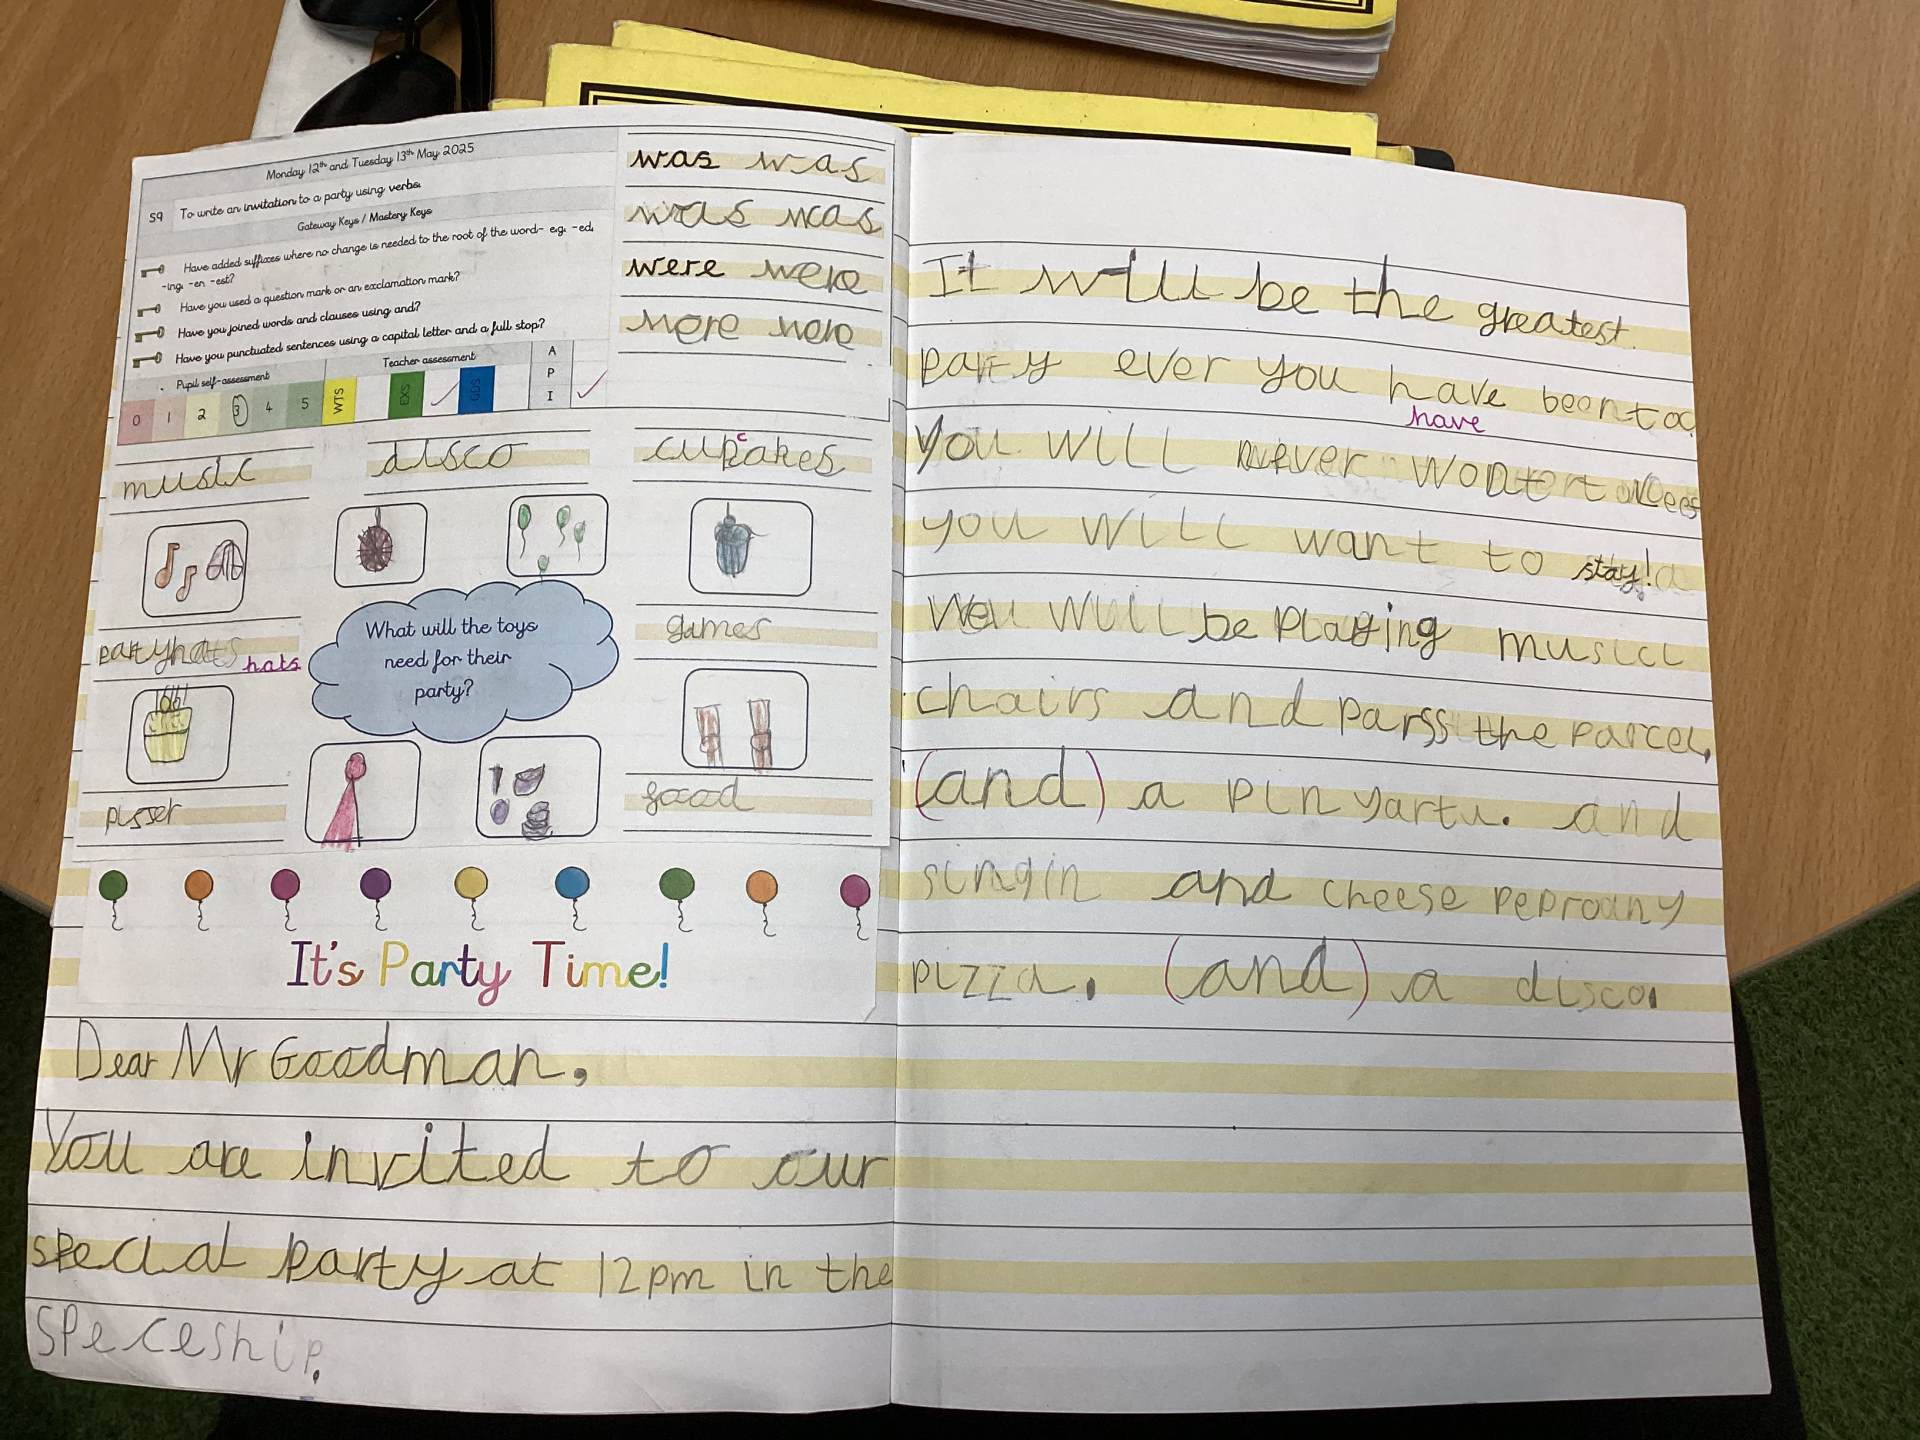 Monday 12th and Tuesday 13th May 2025
S9 To write an invitation to a party using verbs.
Gateway Keys / Mastery Keys
Have added suffixes where no change is needed to the root of the word- e.g. -ed, -ing, -er, -est?
Have you used a question mark or an exclamation mark?
Have you joined words and clauses using and?
Have you punctuated sentences using a capital letter and a full stop?
Pupil self-assessment Teacher assessment
0 1 2 3 4 5 WTS EXS GDS
A
P
I
was was
was was
were were
were were
music disco cupcakes
What will the toys
need for their
party?
party hats hats
games
pisser
foood
It's Party Time!
Dear Mr Goodman,
You are invited to our
special party at 12pm in the
speceship.
It will be the greatest
party ever you have been to
have
You will never
you will want to stay!
We will be playing music
chairs and parss the parcel,
(and) a pinyartu. and
singin and cheese peproany
pizza. (and) a disco.